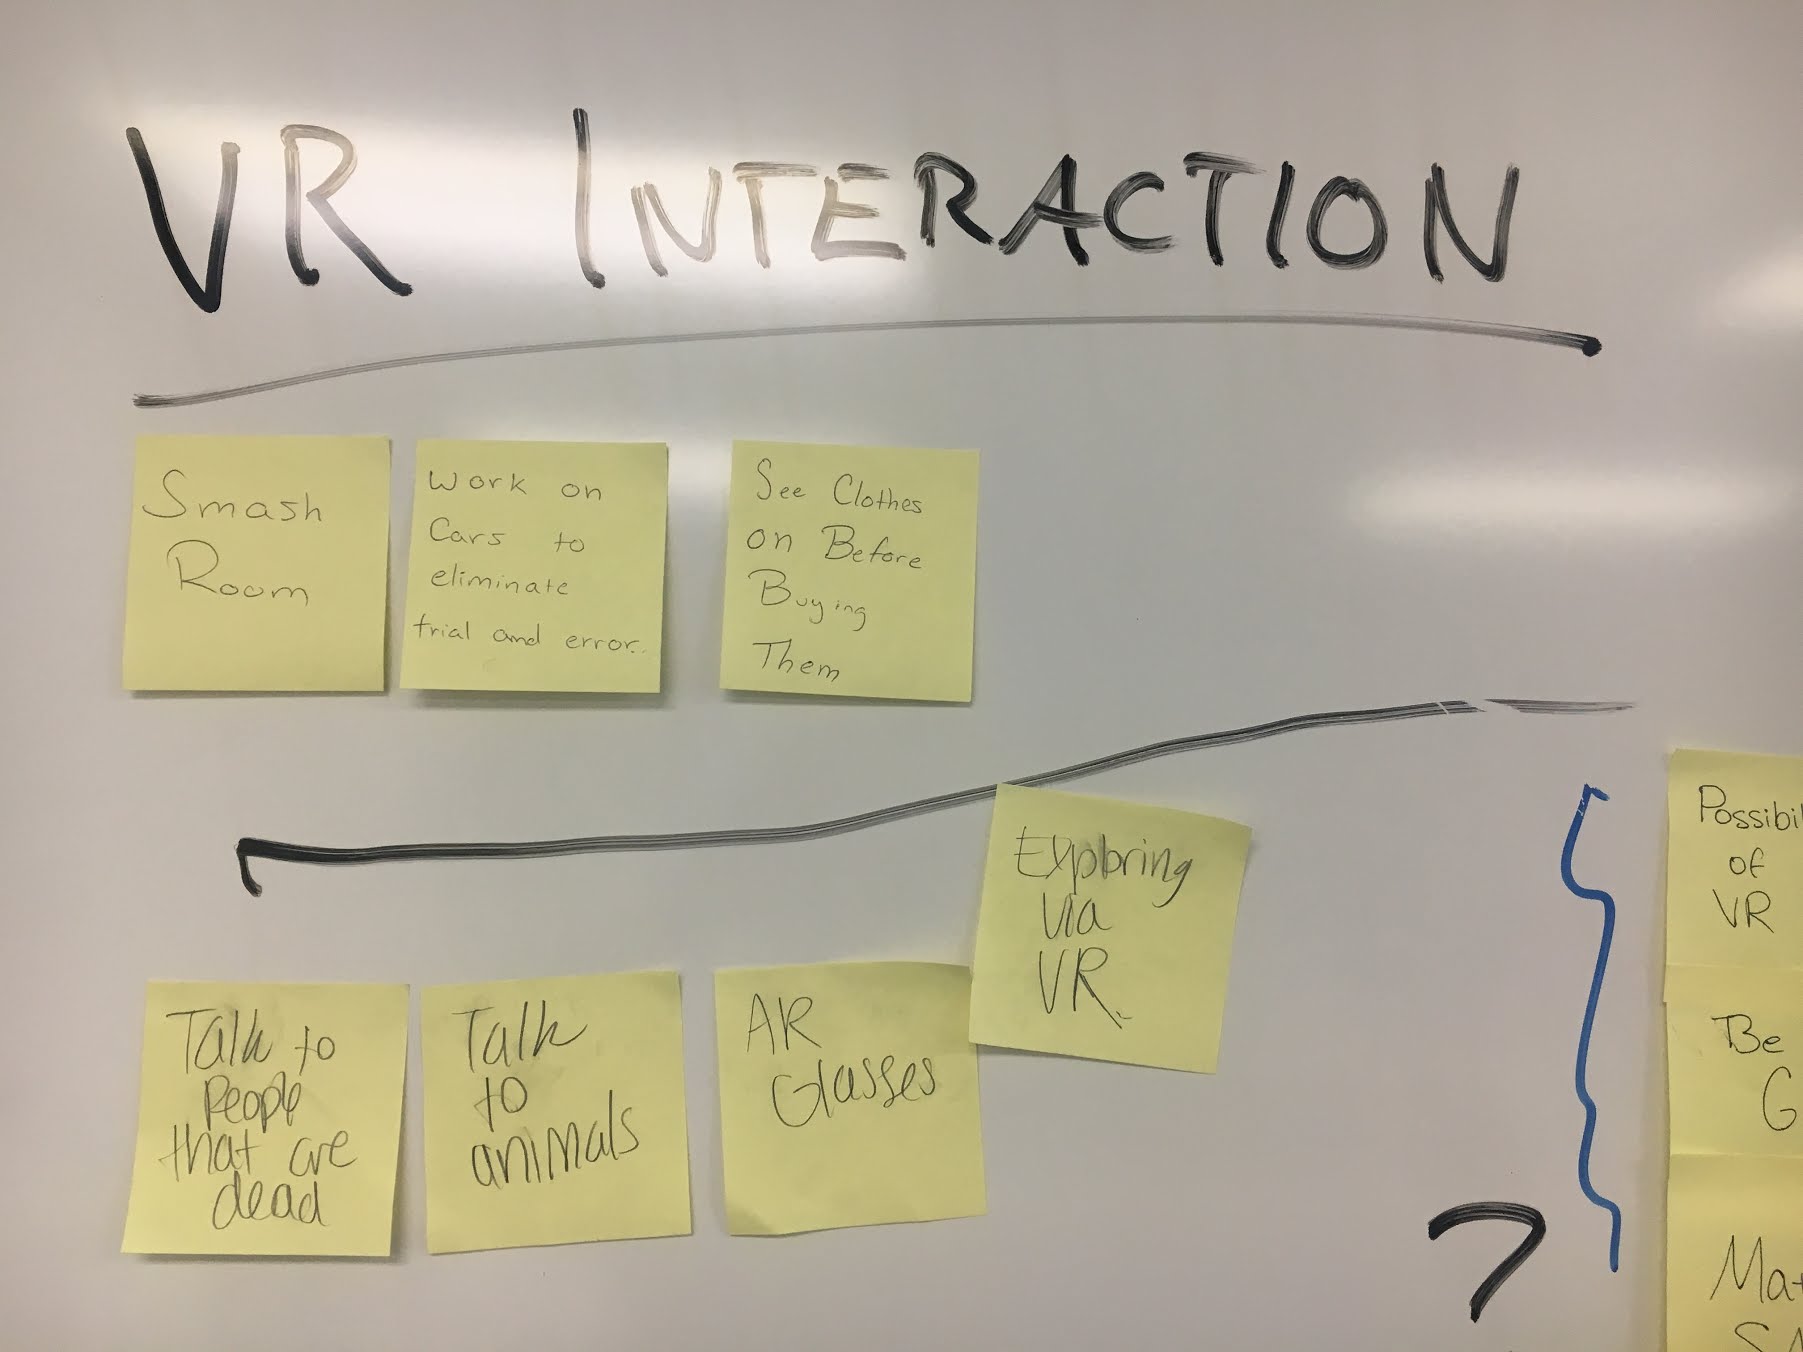 VR INTERACTION
Smash
Room
Work on
Cars to
eliminate
trial and error..
See Clothes
on Before
Buying
Them
Exploring
via
VR.
Talk to
People
that are
dead
Talk
to
animals
AR
Glasses
?
Possibi
of
VR
Be
G
Mat